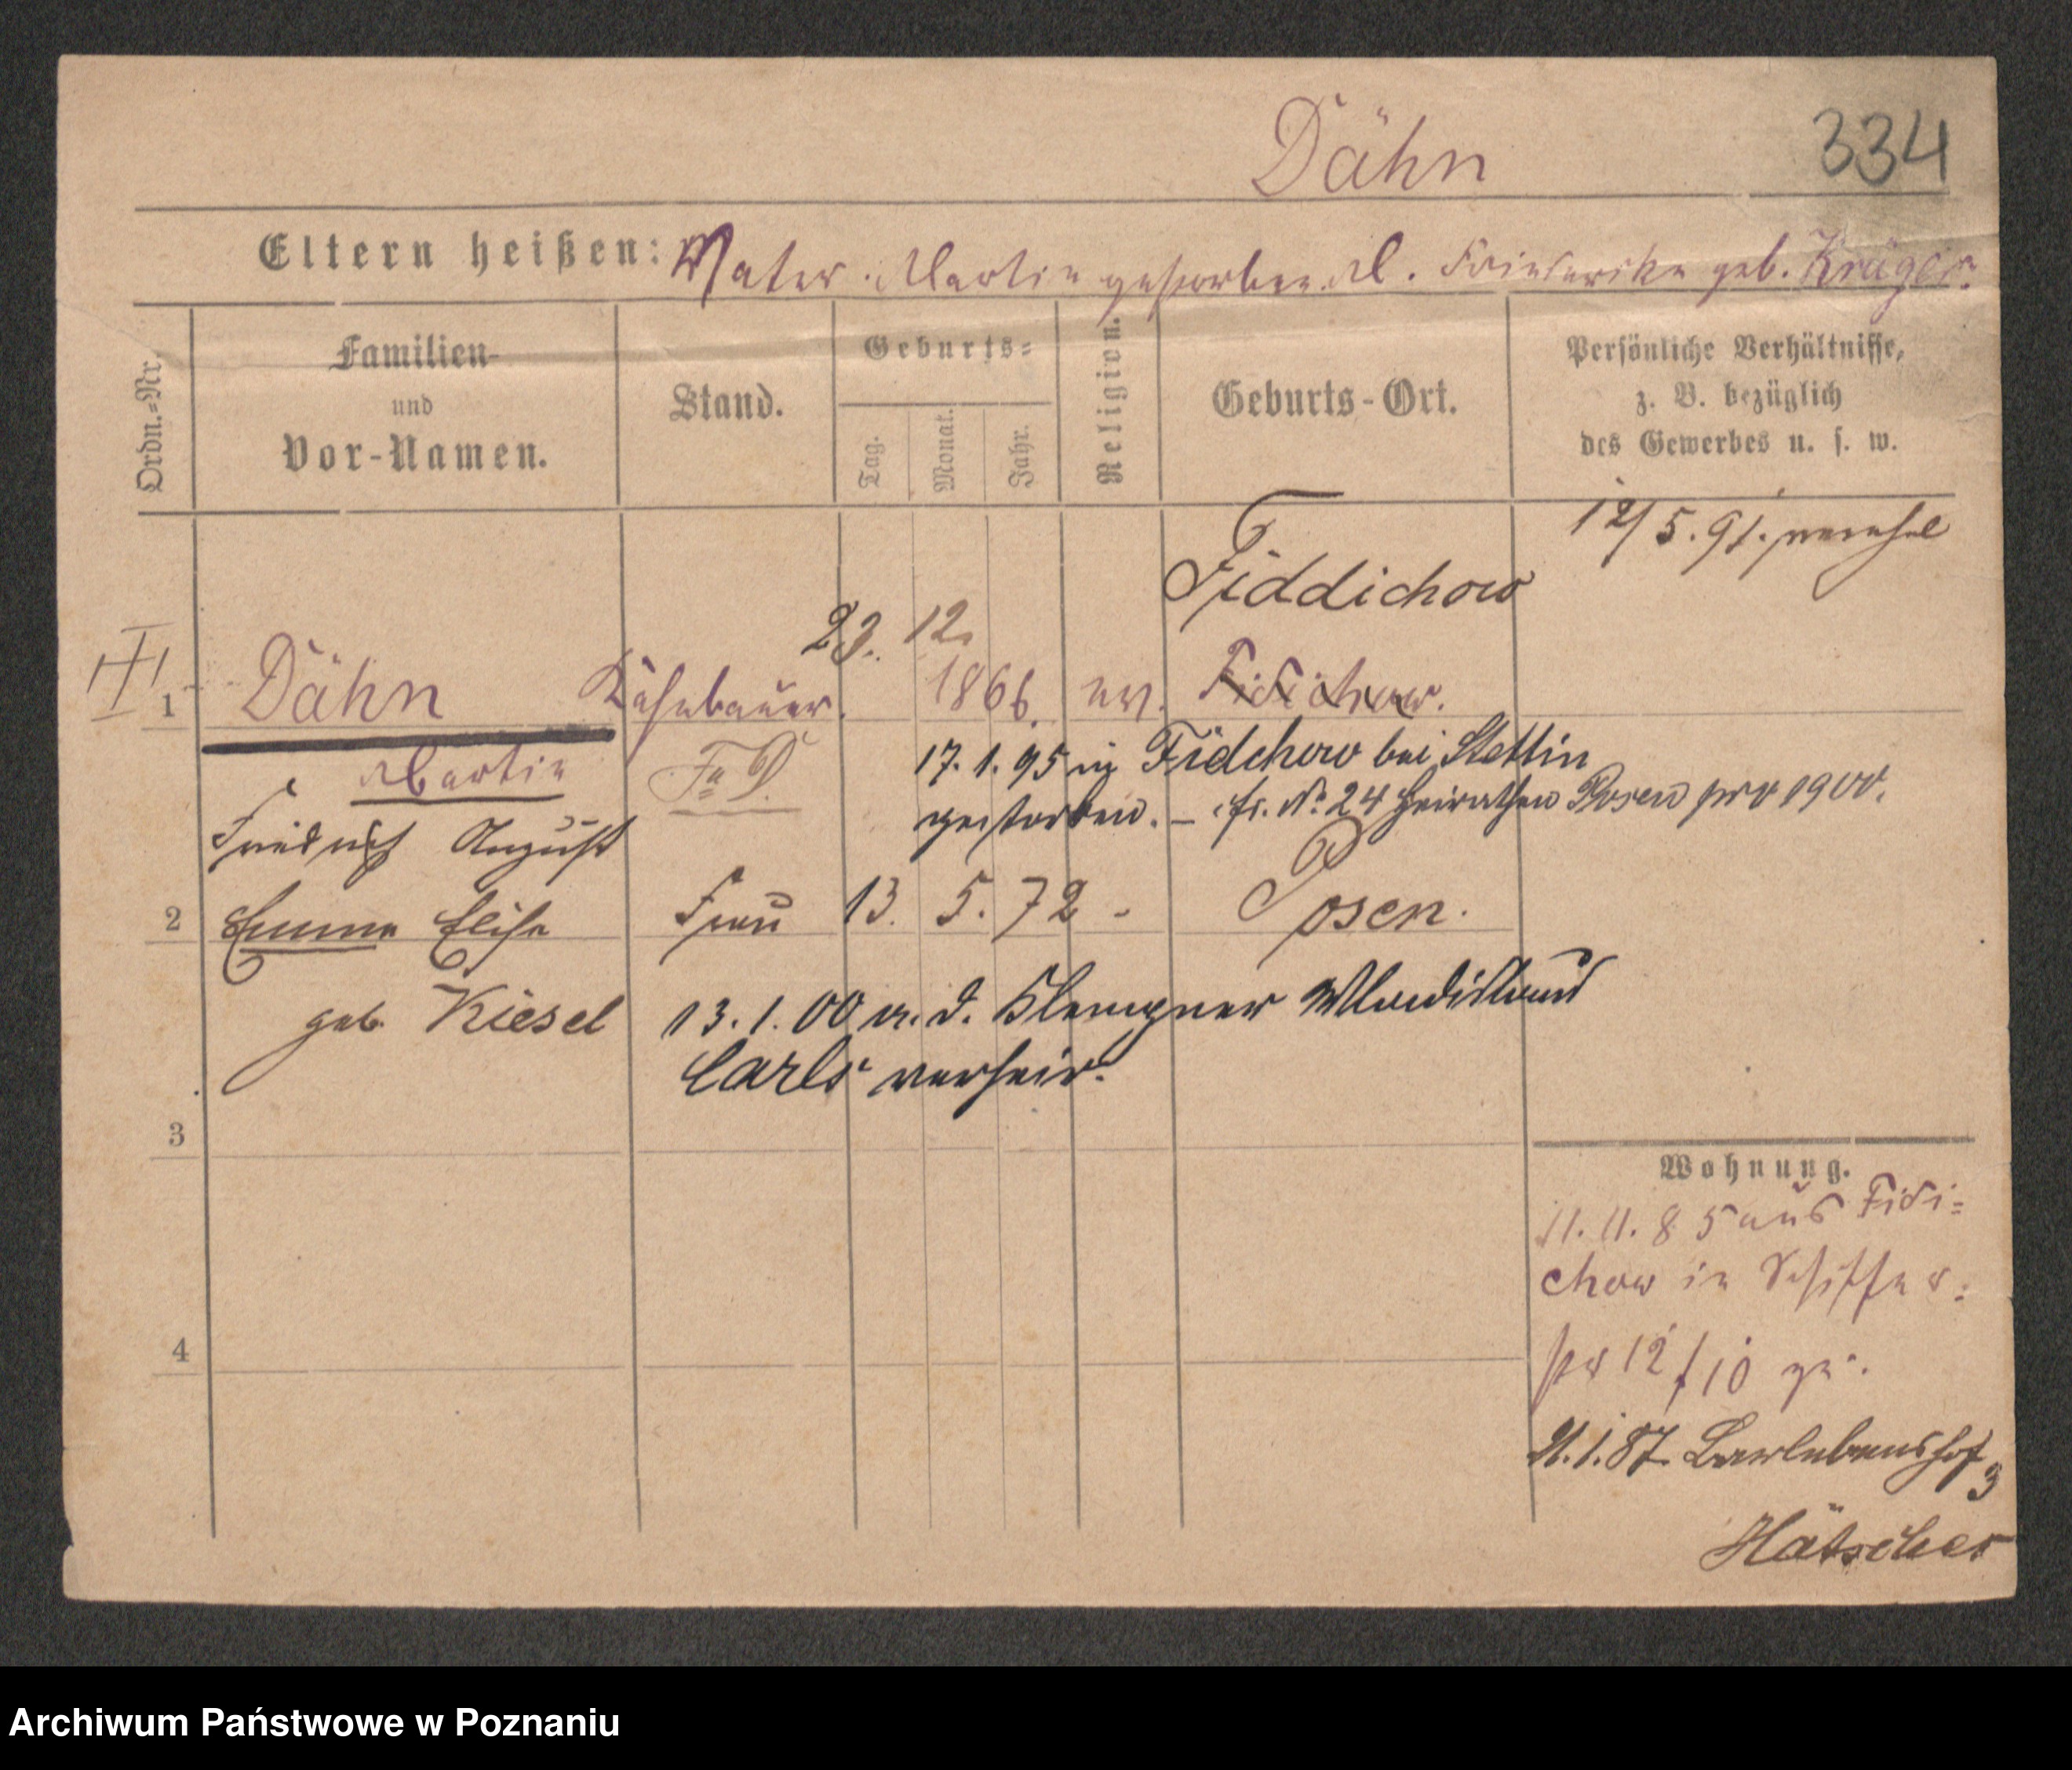 Dähn 334
Eltern heißen: Vater Martin gestorben M. Friederike geb. Kräger.
Ordn.-Nr.
Familien-
und
Vor-Namen.
Stand.
Geburts-
Tag.
Monat.
Jahr.
Religion.
Geburts-Ort.
Persönliche Verhältnisse,
z. B. bezüglich
des Gewerbes u. s. w.
12/5.91. verehel
Fiddichow
23. 12.
1 Dähn 1866. ev. Fidichow.
Martin
17. 1. 95 in Fidchow bei Stettin
gestorben. — cfr. No. 24 Heirathen Posen pro 1900.
Friedrich August
2 Emma Elise Frau 13. 5. 72 - Posen.
geb. Kiesel
13. 1. 00 m. d. Klempner Wladislaus
Carls verheir.
3
Wohnung.
11. 11. 85 aus Fidi-
chow in Schiffer-
4
12/10
1.87. Berlebenshof
3